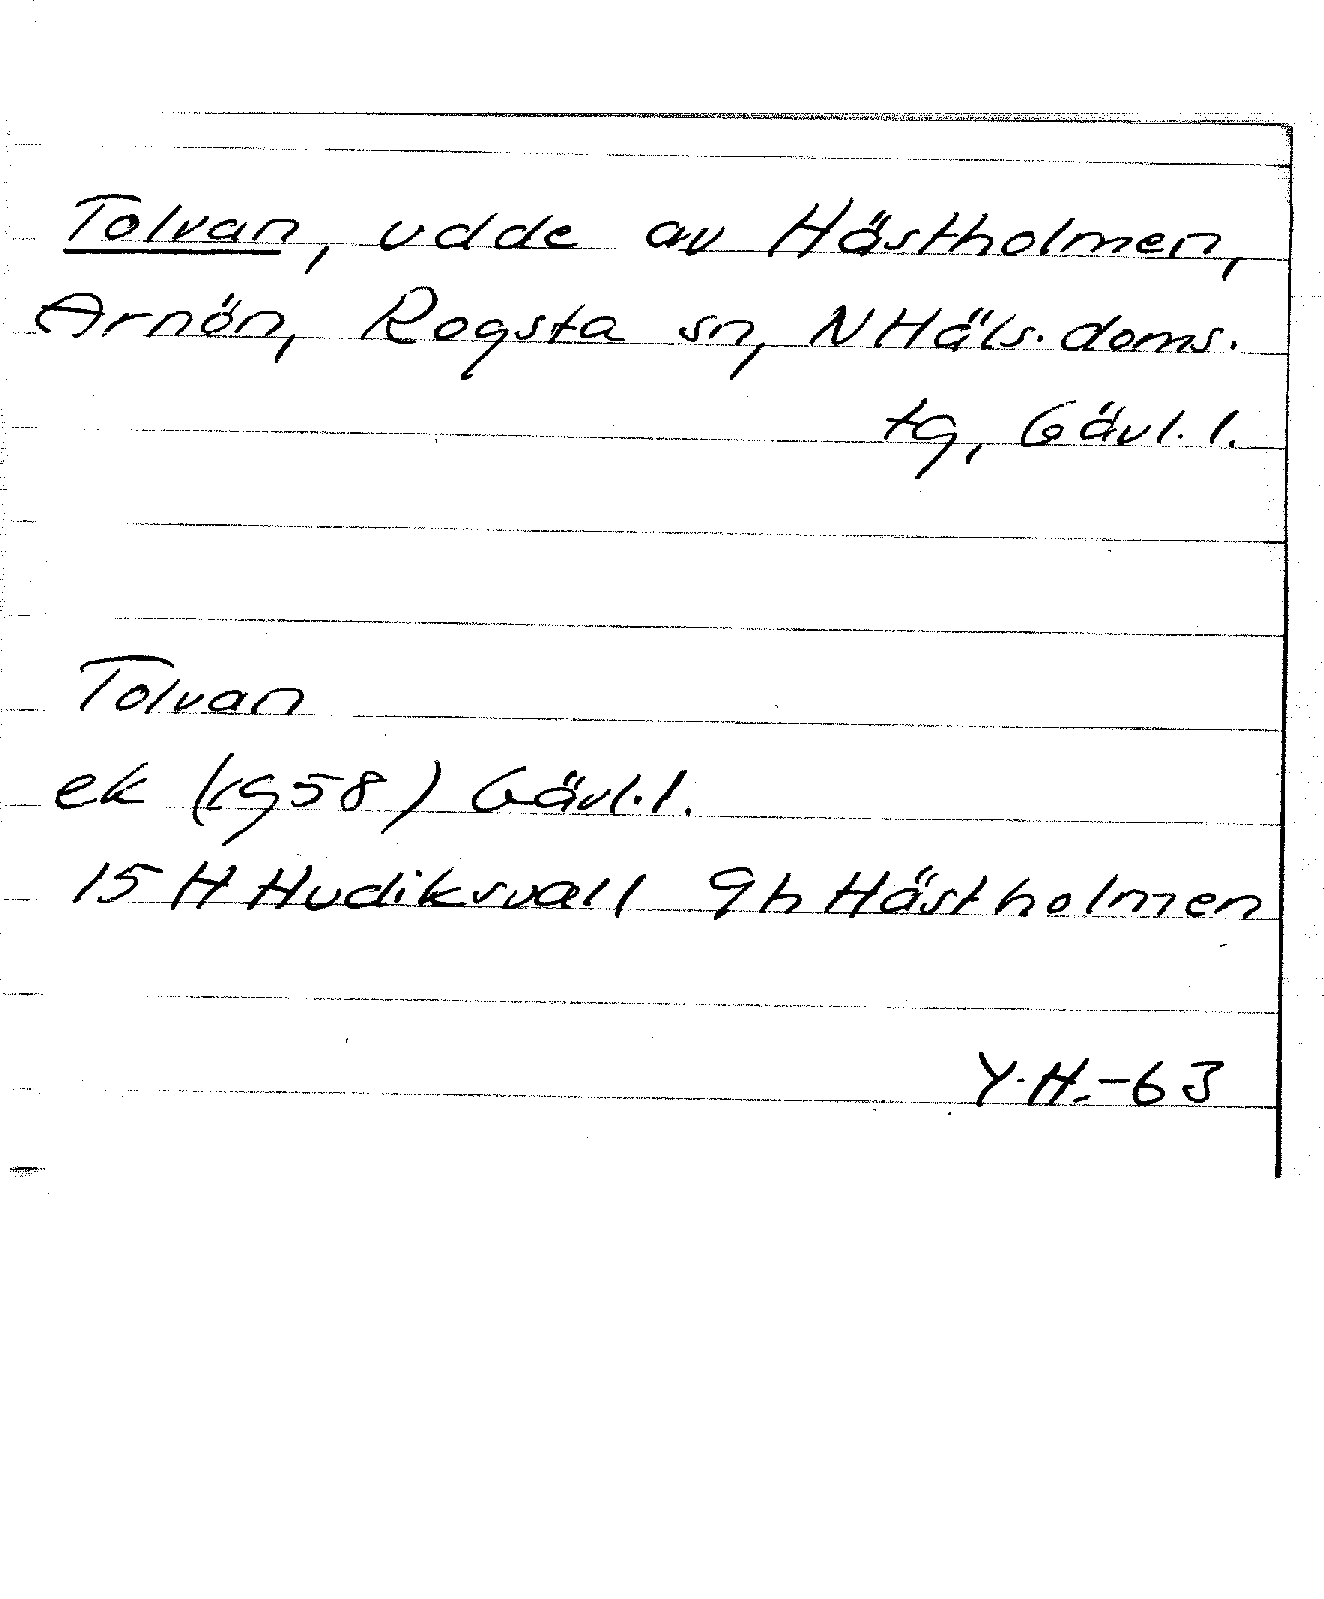 Tolvan, udde av Hästholmen,
Arnön, Rogsta sn, N Häls. doms.
tg, Gävl. l.
Tolvan
ek (1958) Gävl. l.
15 H Hudiksvall 9h Hästholmen
Y.H.-63